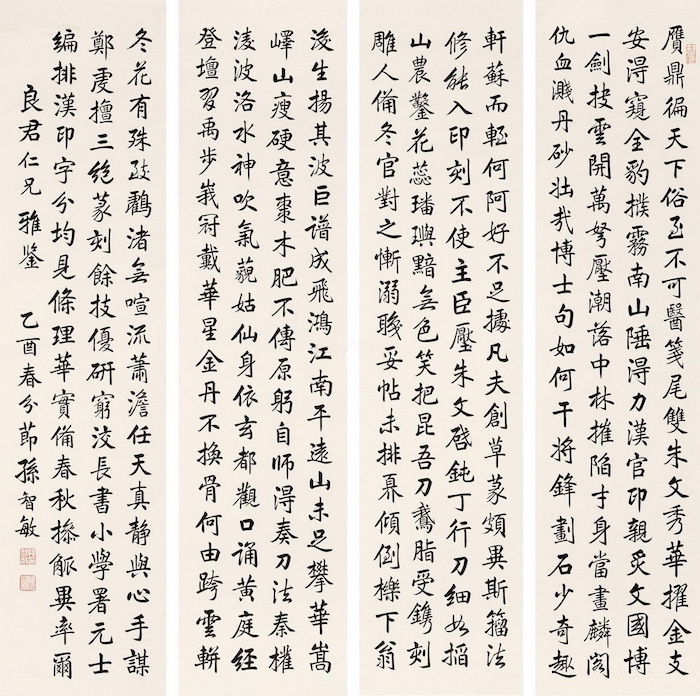 贗鼎徧天下俗至不可醫箋尾雙朱文秀華擢金支
安得窺全豹撲霧南山陲得力漢官印親炙文國博
一劍披雲開萬弩壓潮落中林摧陷才身當畫麟閣
仇血濺丹砂壮哉博士句如何干將鋒劃石少奇趣
軒蘇而輊何阿好不足據凡夫創草篆頗異斯籀法
修能入印刻不使主臣壓朱文啓鈍丁行刀細如掐
山農鑿花蕊璠璵黯無色笑把昆吾刀鵞脂受鐫刻
雕人備冬官對之慚溺職妥帖未排奡傾倒櫟下翁
浚生揚其波巨譜成飛鴻江南平遠山未足攀華嵩
嶧山瘦硬意棗木肥不傳原躬自師得奏刀法秦權
淩波洛水神吹氣藐姑仙身依玄都觀口誦黃庭經
登壇習禹步峩冠戴華星金丹不換骨何由跨雲軿
冬花有殊致鸛渚無喧流蕭澹任天真靜與心手謀
鄭虔擅三絕篆刻餘技優研窮洨長書小學署元士
編排漢印字分均見條理華實備春秋摻觚異率爾
良君仁兄雅鑒 乙酉春分節孫智敏